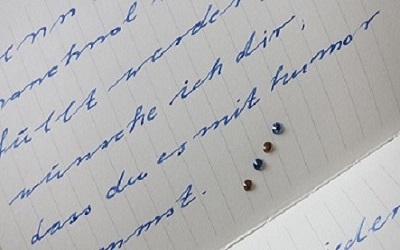 wenn
manchmal
füllt werden,
wünsche ich dir,
dass du es mit humor
nimmst.